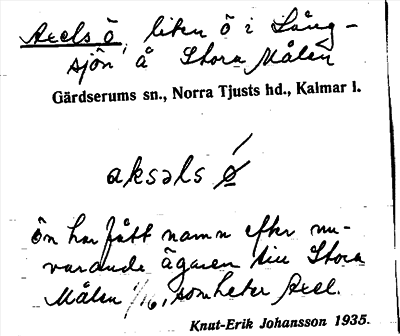 Axels ö, liten ö i Lång-
sjön å Stora Målen
Gärdserums sn., Norra Tjusts hd., Kalmar l.
aksəls ǿ
Ön har fått namn efter nu-
varande ägaren till Stora
Målen 1/16, som heter Axel.
Knut-Erik Johansson 1935.